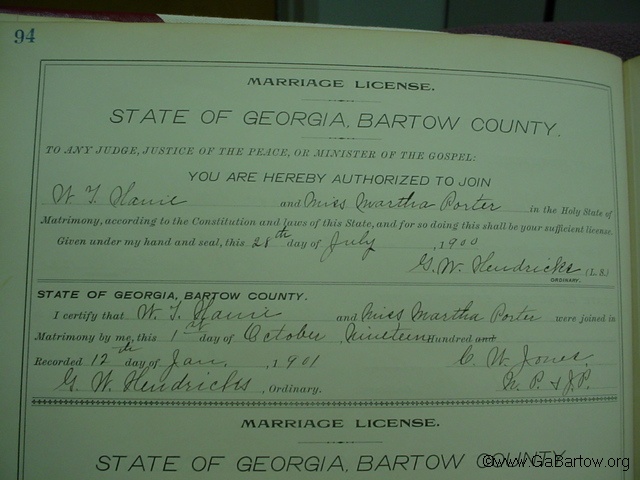 94
MARRIAGE LICENSE.
STATE OF GEORGIA, BARTOW COUNTY.
TO ANY JUDGE, JUSTICE OF THE PEACE, OR MINISTER OF THE GOSPEL:
YOU ARE HEREBY AUTHORIZED TO JOIN
W. T. and Miss Martha Porter in the Holy State of
Matrimony, according to the Constitution and laws of this State, and for so doing this shall be your sufficient license.
Given under my hand and seal, this 28th day of July , 1900
G. W. Hendricks (L. S.)
ORDINARY.
STATE OF GEORGIA, BARTOW COUNTY.
I certify that W. T. and Miss Martha Porter were joined in
Matrimony by me, this 1st day of October Nineteen Hundred and
Recorded 12th day of Jan. , 1901 C. W. Jones.
G. W. Hendricks , Ordinary. N. P. & J. P.
MARRIAGE LICENSE.
STATE OF GEORGIA, BARTOW COUNTY
©www.GaBartow.org